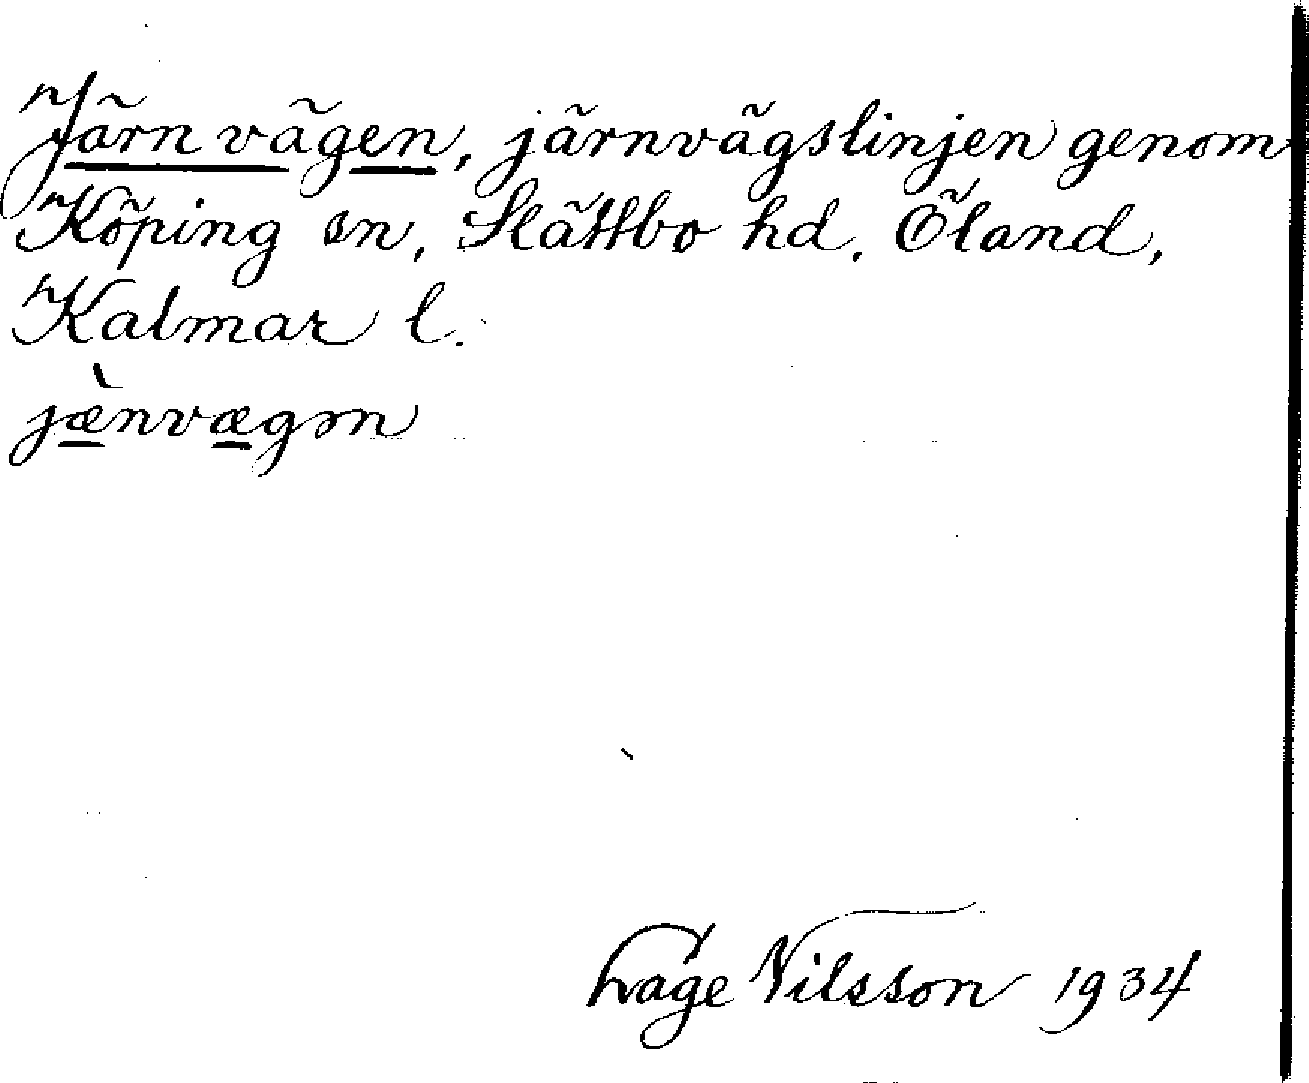 Järnvägen, järnvägslinjen genom
Köping sn, Slättbo hd. Öland,
Kalmar l.
jæ̀nvægən
Nilsson 1934